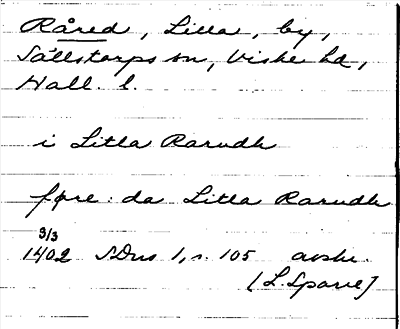 Råred, Lilla, by,
Sällstorps sn, Viske hd,
Hall. l.
i Litla Rarudh
före: da Litla Rarudh
3/3
1402 SDns 1, s. 105 avskr.
[L. Sparre]